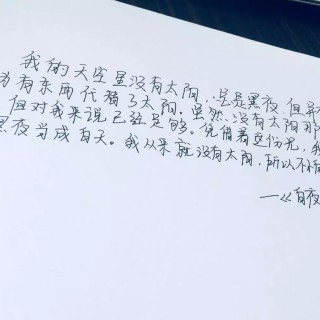 我的天空里没有太阳,总是黑夜,但并
为有东西代替了太阳。虽然没有太阳那
但对我来说已经足够。凭借着这份光,我
黑夜当成白天。我从来就没有太阳,所以不怕
——《白夜